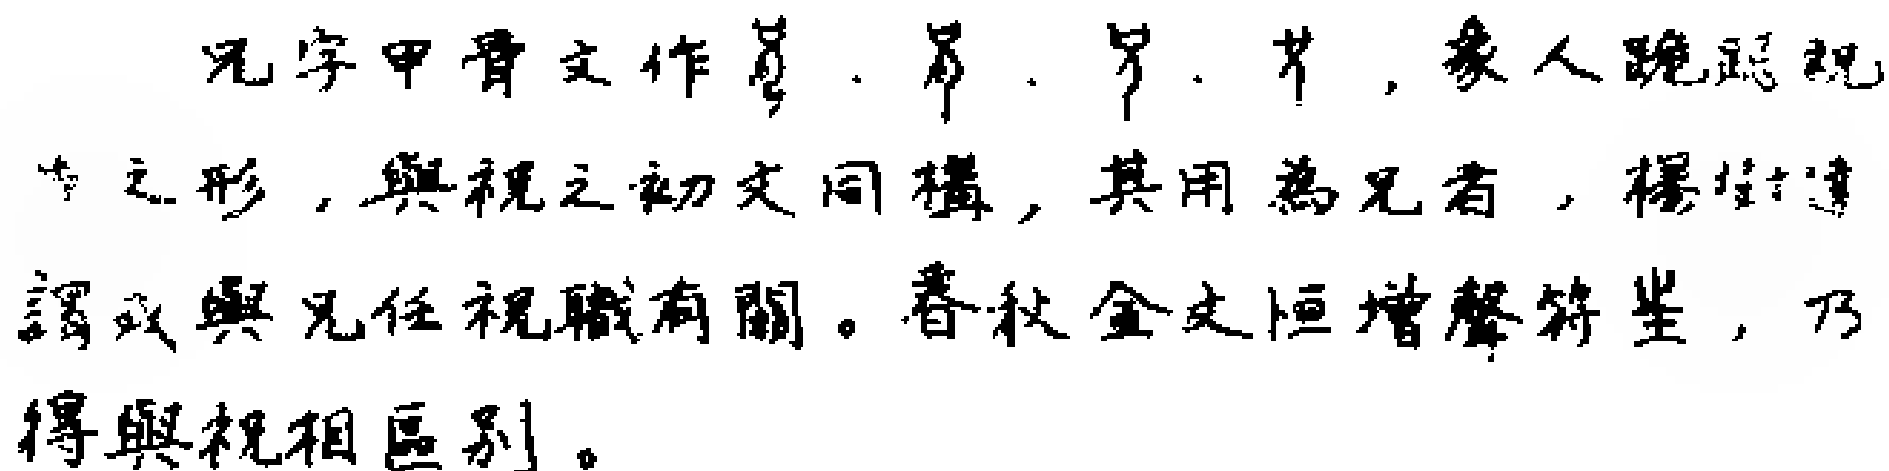 兄字甲骨文作、、、，象人跪跽祝
之形，與祝之初文同構，其用為兄者，楊樹達
謂或與兄任祝職有關。春秋金文恒增聲符㞷，乃
得與祝相區別。